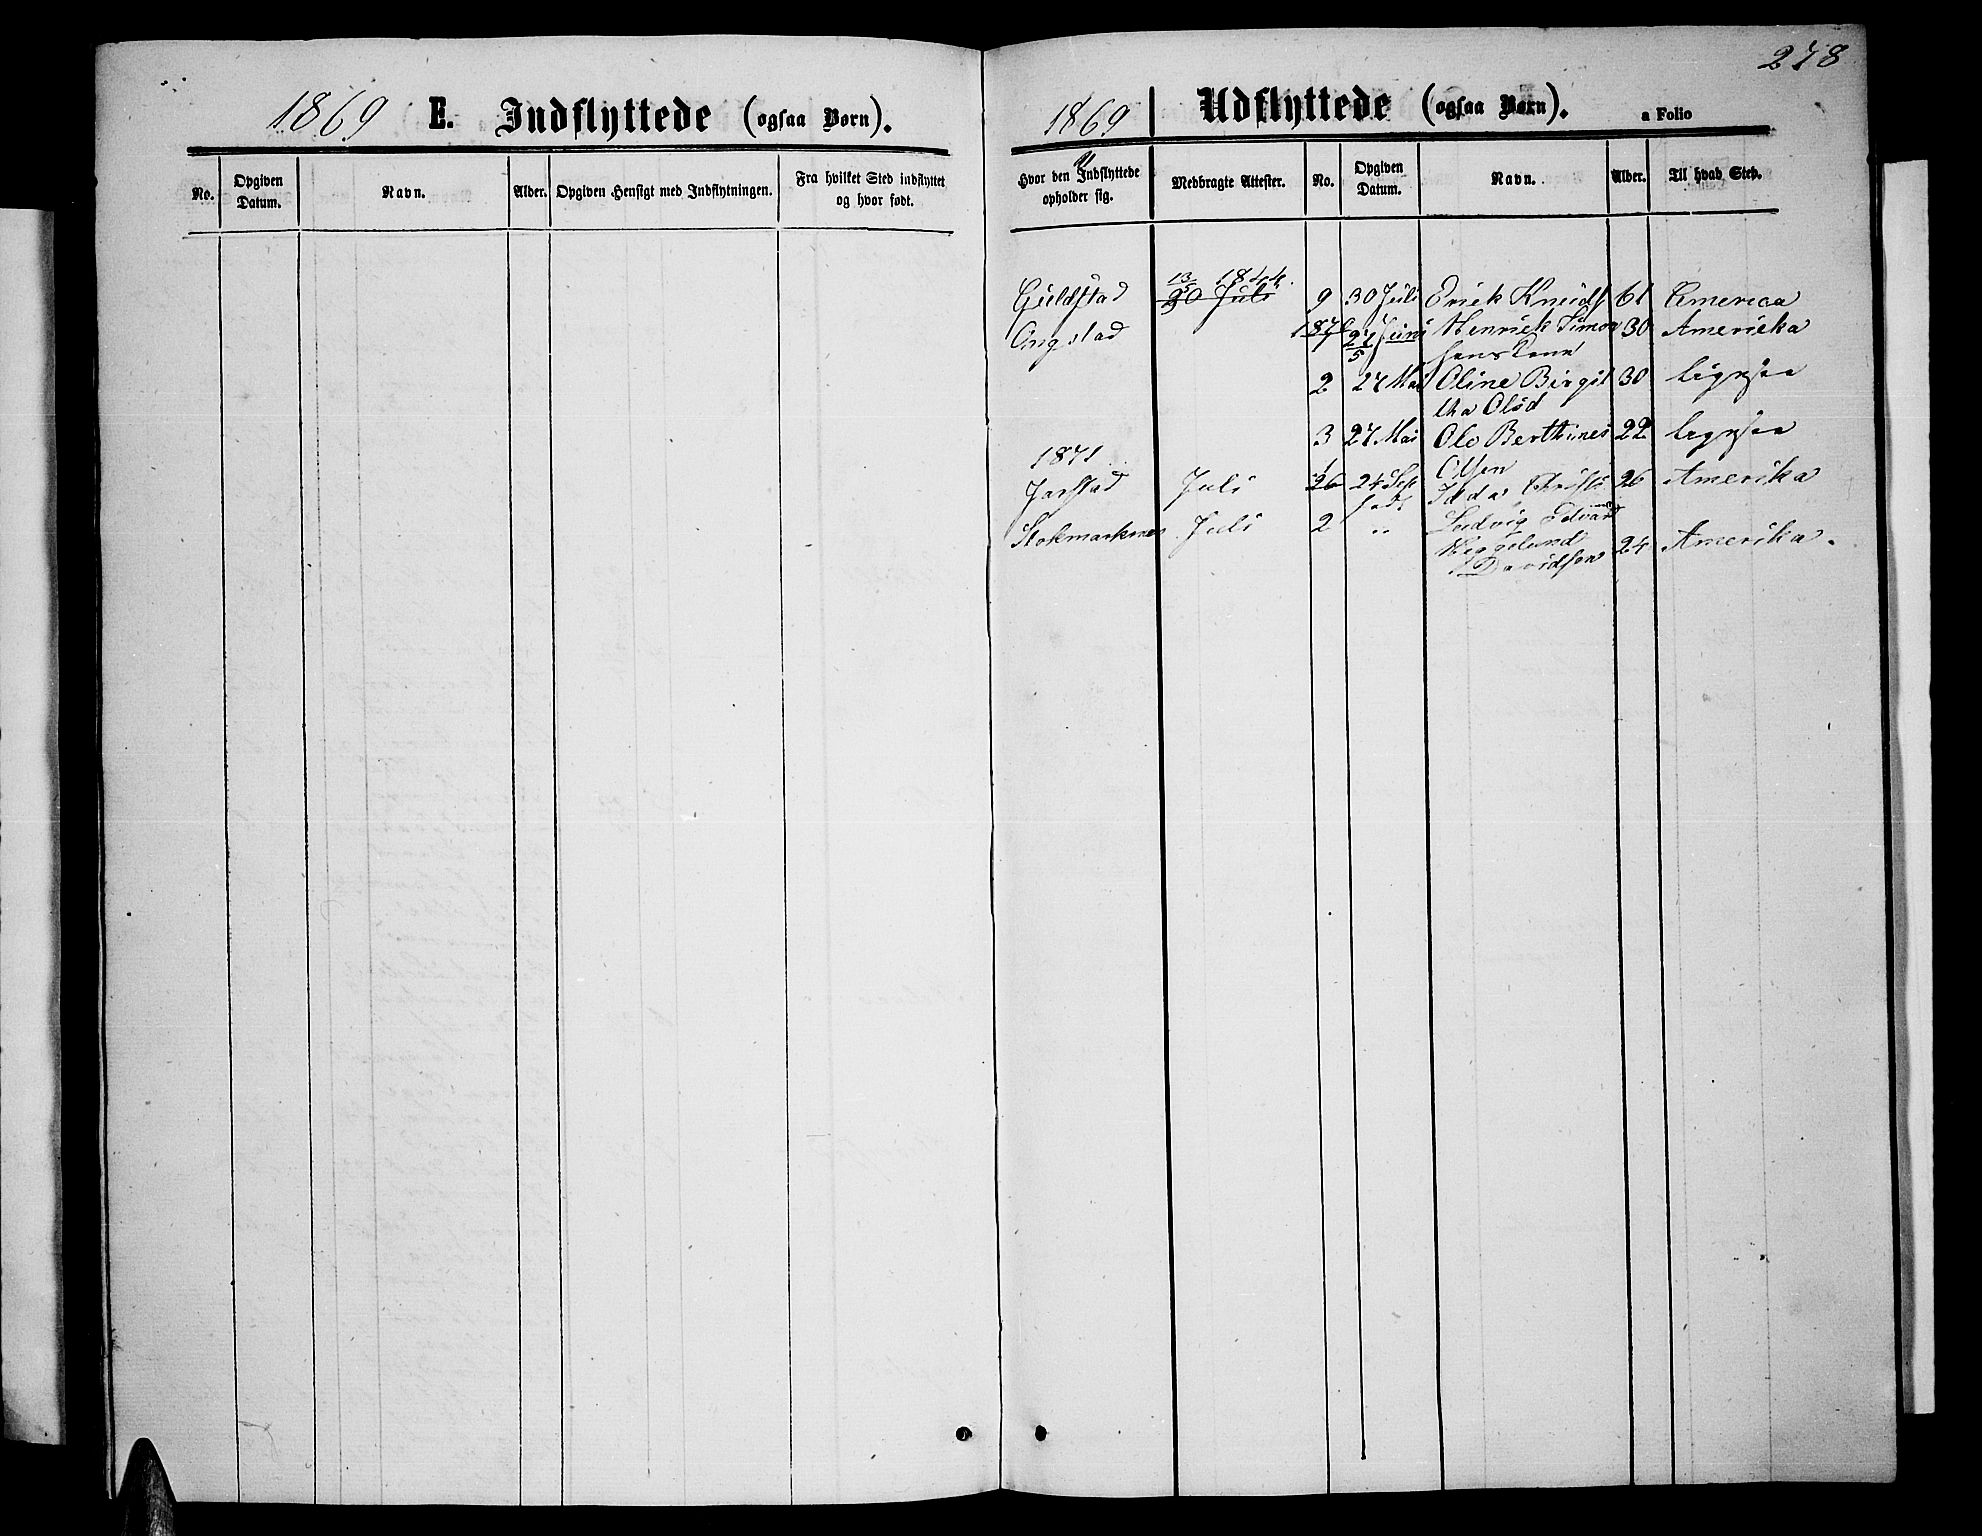 278
1869 E. Indflyttede (ogsaa Børn).
No. Opgiven Datum. Navn. Alder. Opgiven Hensigt med Indflytningen. Fra hvilket Sted indflyttet og hvor født.
1869 Udflyttede (ogsaa Børn). a Folio
Hvor den Indflyttede opholder sig. Medbragte Attester. No. Opgiven Datum. Navn. Alder. Til hvad Sted.
13/5 1844.
Guldstad 30 Juli 9 30 Juli Erick Knuds 61 America
Ongstad 1870 Juni Henrick Simon 30 Amerieka
1 27/5 sens Kone
2 27 Mai Oline Birgit 30 ligesaa
tha Olsd
3 27 Mai Ole Berthines 22 ligesaa
1871 Olsen
Jarstad Juli 1 24 Sept Idda Christ 26 Amerika
Stokmarknes Juli 2 " Ludvig Edvard
Heggelund 24 Amerika.
Davidsen